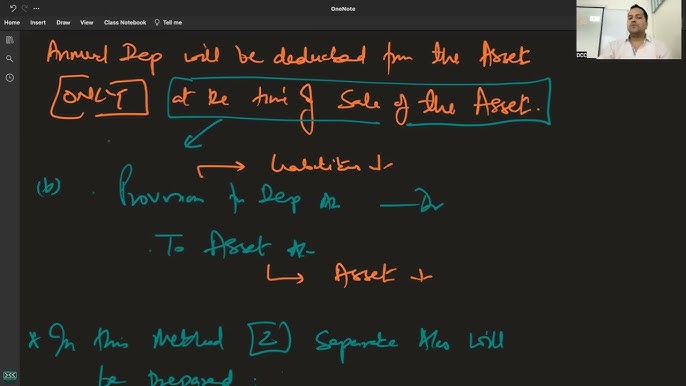 OneNote
Home Insert Draw View Class Notebook Tell me
Annual Dep will be deducted from the Asset
ONLY at the time of Sale of the Asset.
Liabilities ↓
(b) Provision for Dep A/c → Dr
To Asset A/c
Asset ↓
* In this Method [2] Separate A/cs will
be prepared.